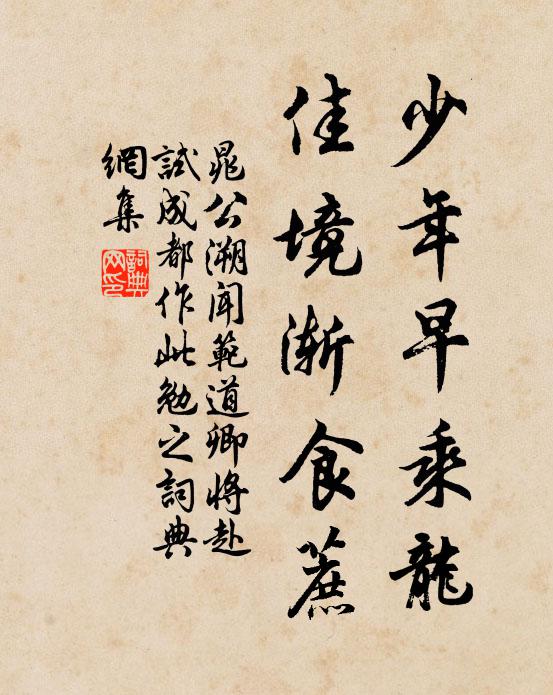 少年早乘龍
佳境漸食蔗
晁公溯聞範道卿將赴
試成都作此勉之詞典
網集
詞典網印